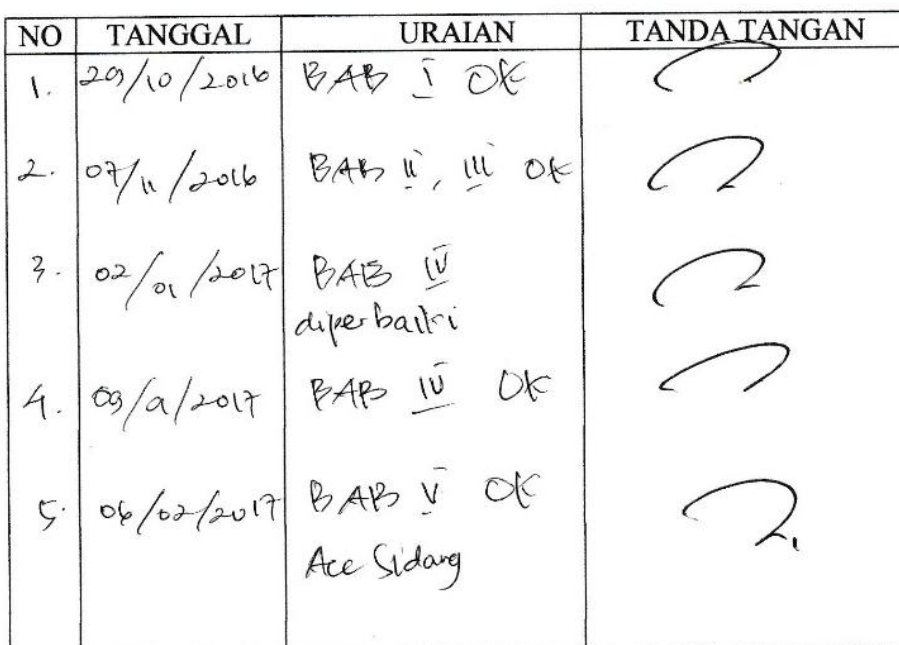 NO TANGGAL URAIAN TANDA TANGAN
1. 29/10/2016 BAB I OK
2. 07/11/2016 BAB II, III OK
3. 02/01/2017 BAB IV
diperbaiki
4. 09/01/2017 BAB IV OK
5. 06/02/2017 BAB V OK
Acc Sidang